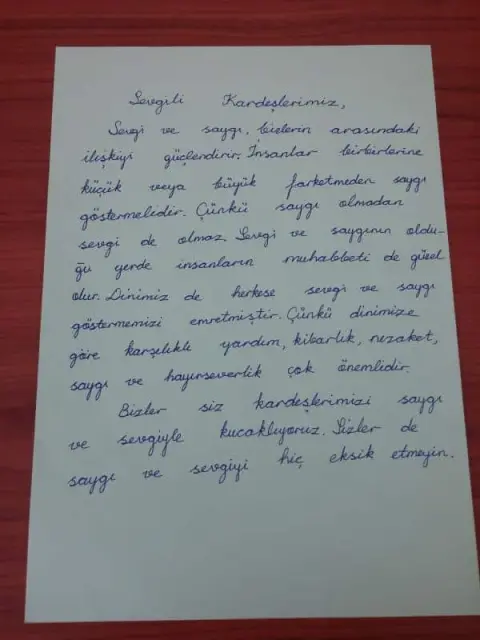 Sevgili Kardeşlerimiz,
Sevgi ve saygı, bizlerin arasındaki
ilişkiyi güçlendirir. İnsanlar birbirlerine
küçük veya büyük farketmeden saygı
göstermelidir. Çünkü saygı olmadan
sevgi de olmaz. Sevgi ve saygının oldu-
ğu yerde insanların muhabbeti de güzel
olur. Dinimiz de herkese sevgi ve saygı
göstermemizi emretmiştir. Çünkü dinimize
göre karşılıklı yardım, kibarlık, nezaket,
saygı ve hayırseverlik çok önemlidir.
Bizler siz kardeşlerimizi saygı
ve sevgiyle kucaklıyoruz. Sizler de
saygı ve sevgiyi hiç eksik etmeyin.